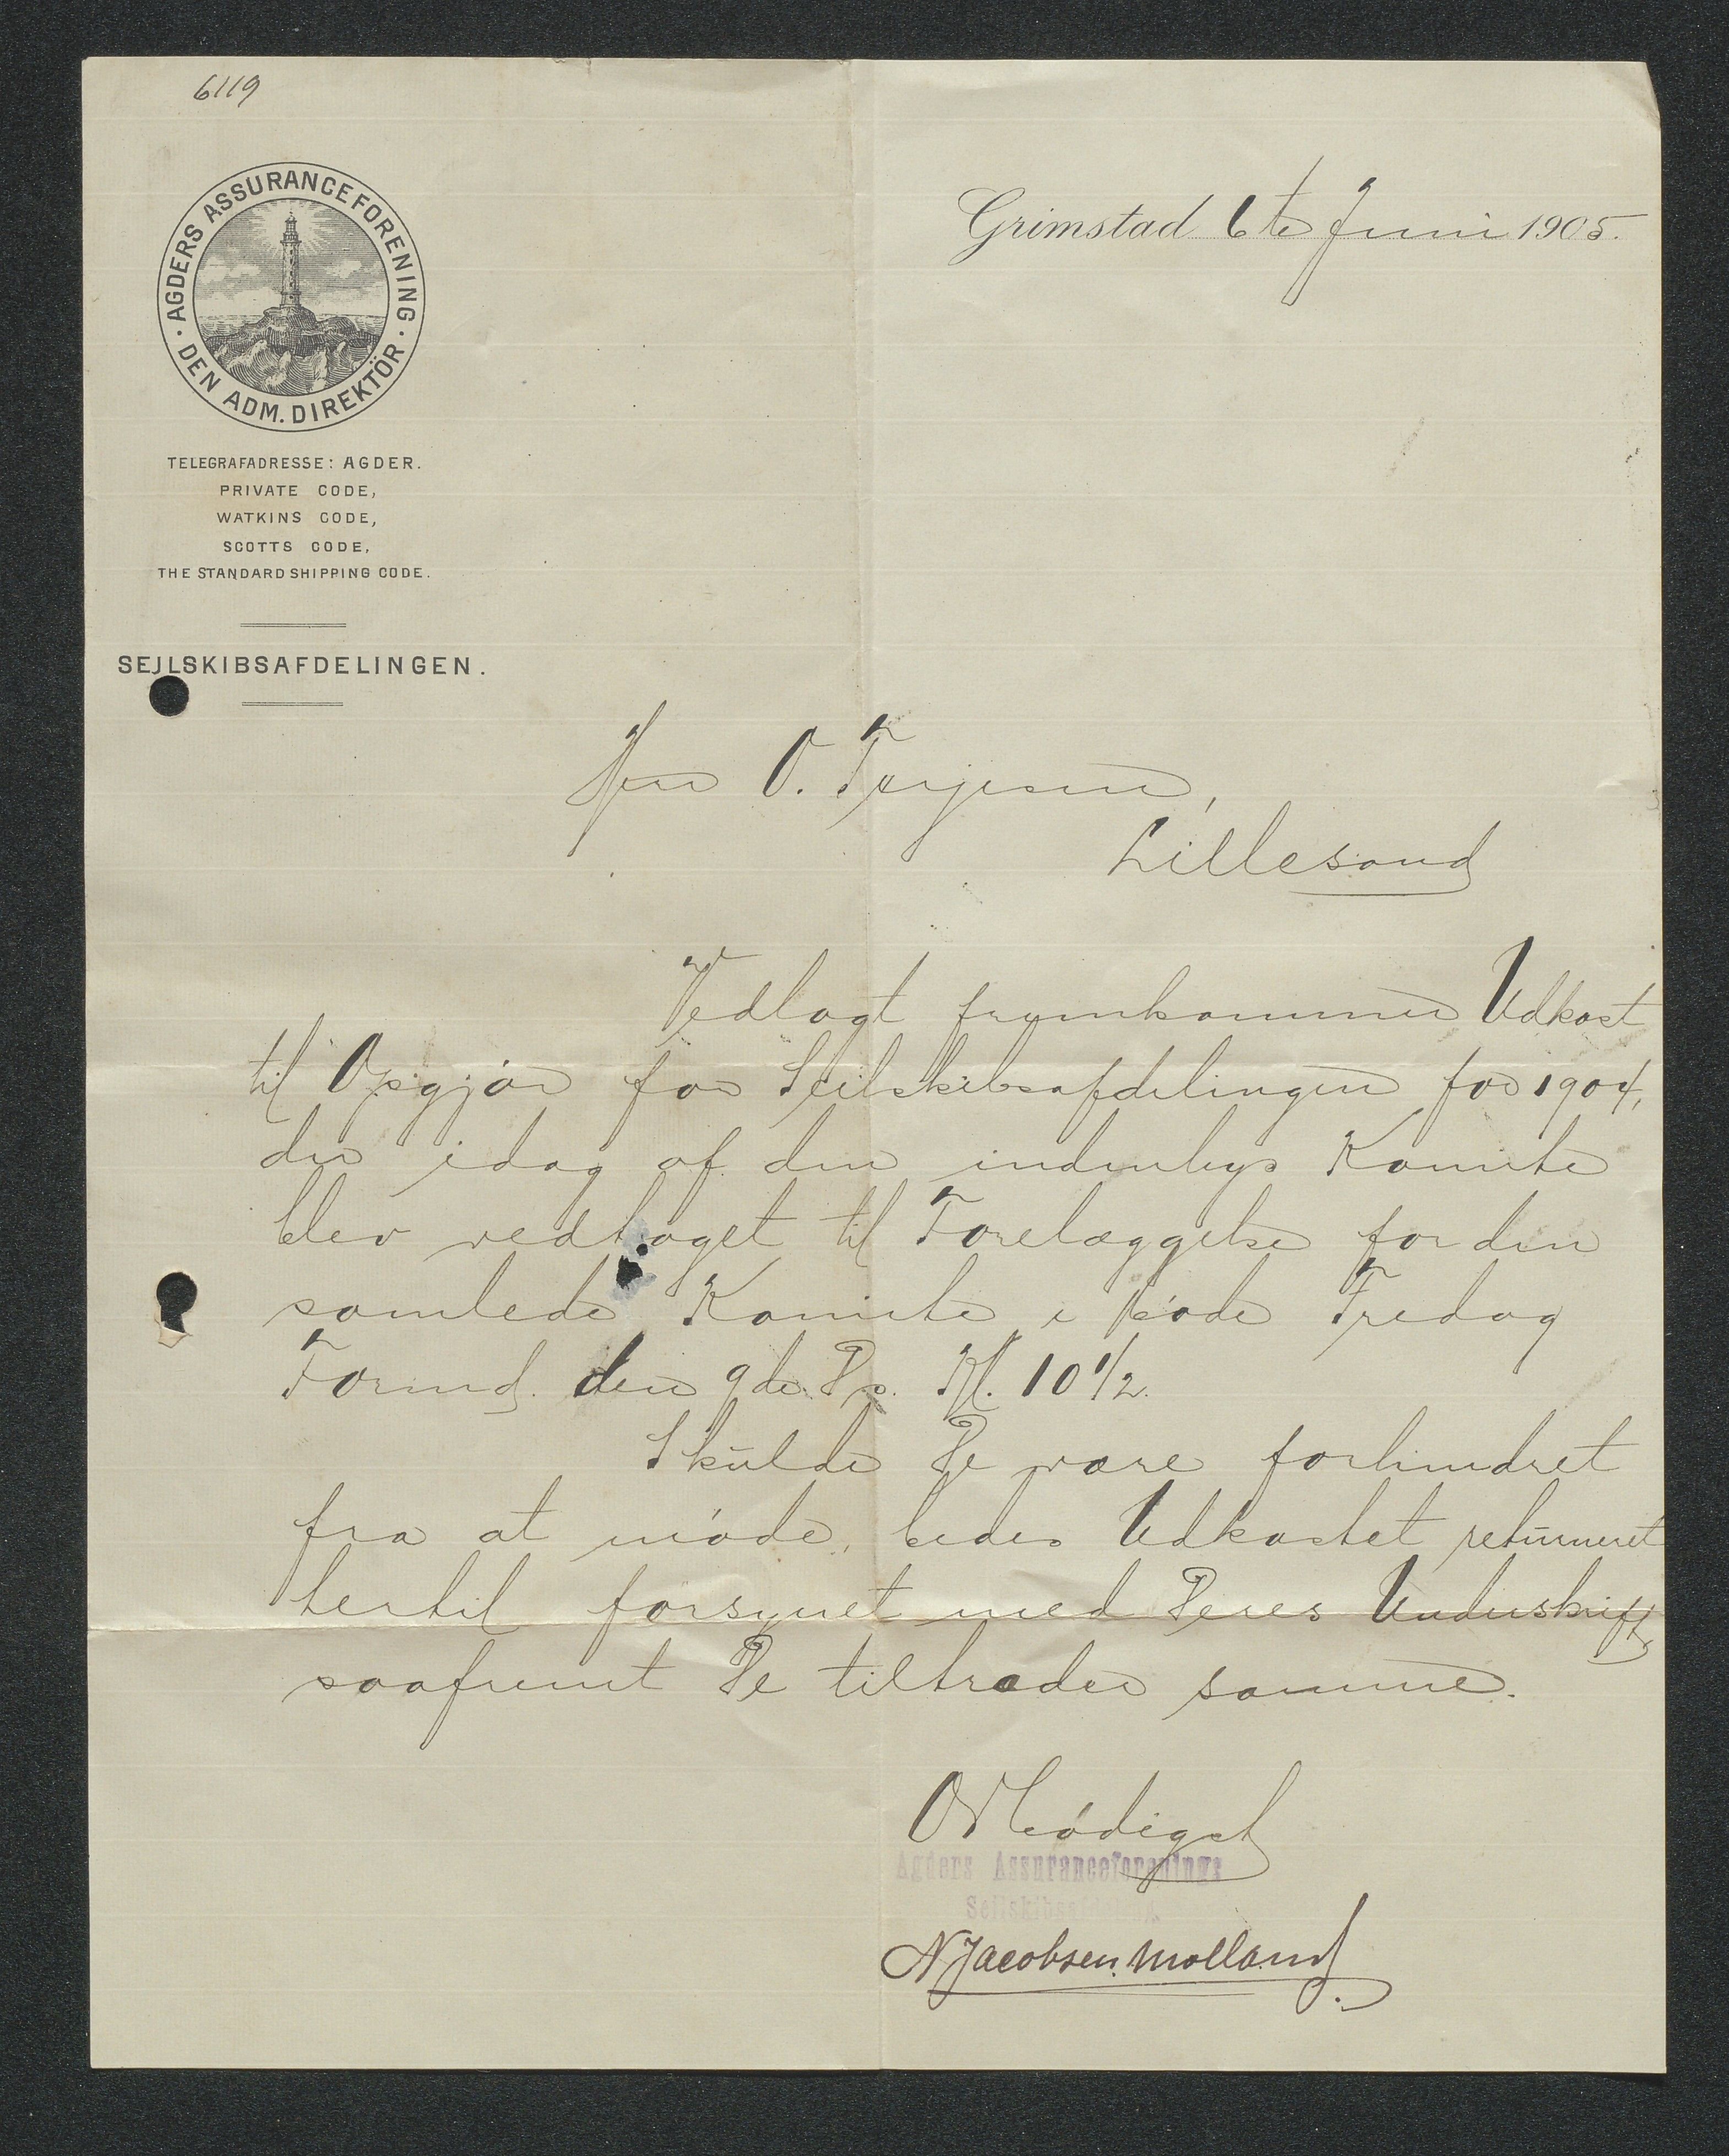 6119
AGDERS ASSURANCEFORENING
DEN ADM. DIREKTÖR
TELEGRAFADRESSE: AGDER.
PRIVATE CODE,
WATKINS CODE,
SCOTTS CODE,
THE STANDARD SHIPPING CODE.
SEJLSKIBSAFDELINGEN.
Grimstad 6te Juni 1905.
Herr O. Terjesen,
Lillesand
Vedlagt fremkommer Udkast
til Opgjør for Seilskibsafdelingen for 1904,
der idag af den indenbys Komite
blev vedtaget til Forelæggelse for den
samlede Komite i Møde Fredag
Formd. den 9de Ds. Kl. 10 1/2.
Skulde De være forhindret
fra at møde, bedes Udkastet returneret
hertil forsynet med Deres Underskrift,
saafremt De tiltræder samme.
Ærbødigst
Agders Assuranceforenings
Seilskibsafdeling
N Jacobsen. Molland.